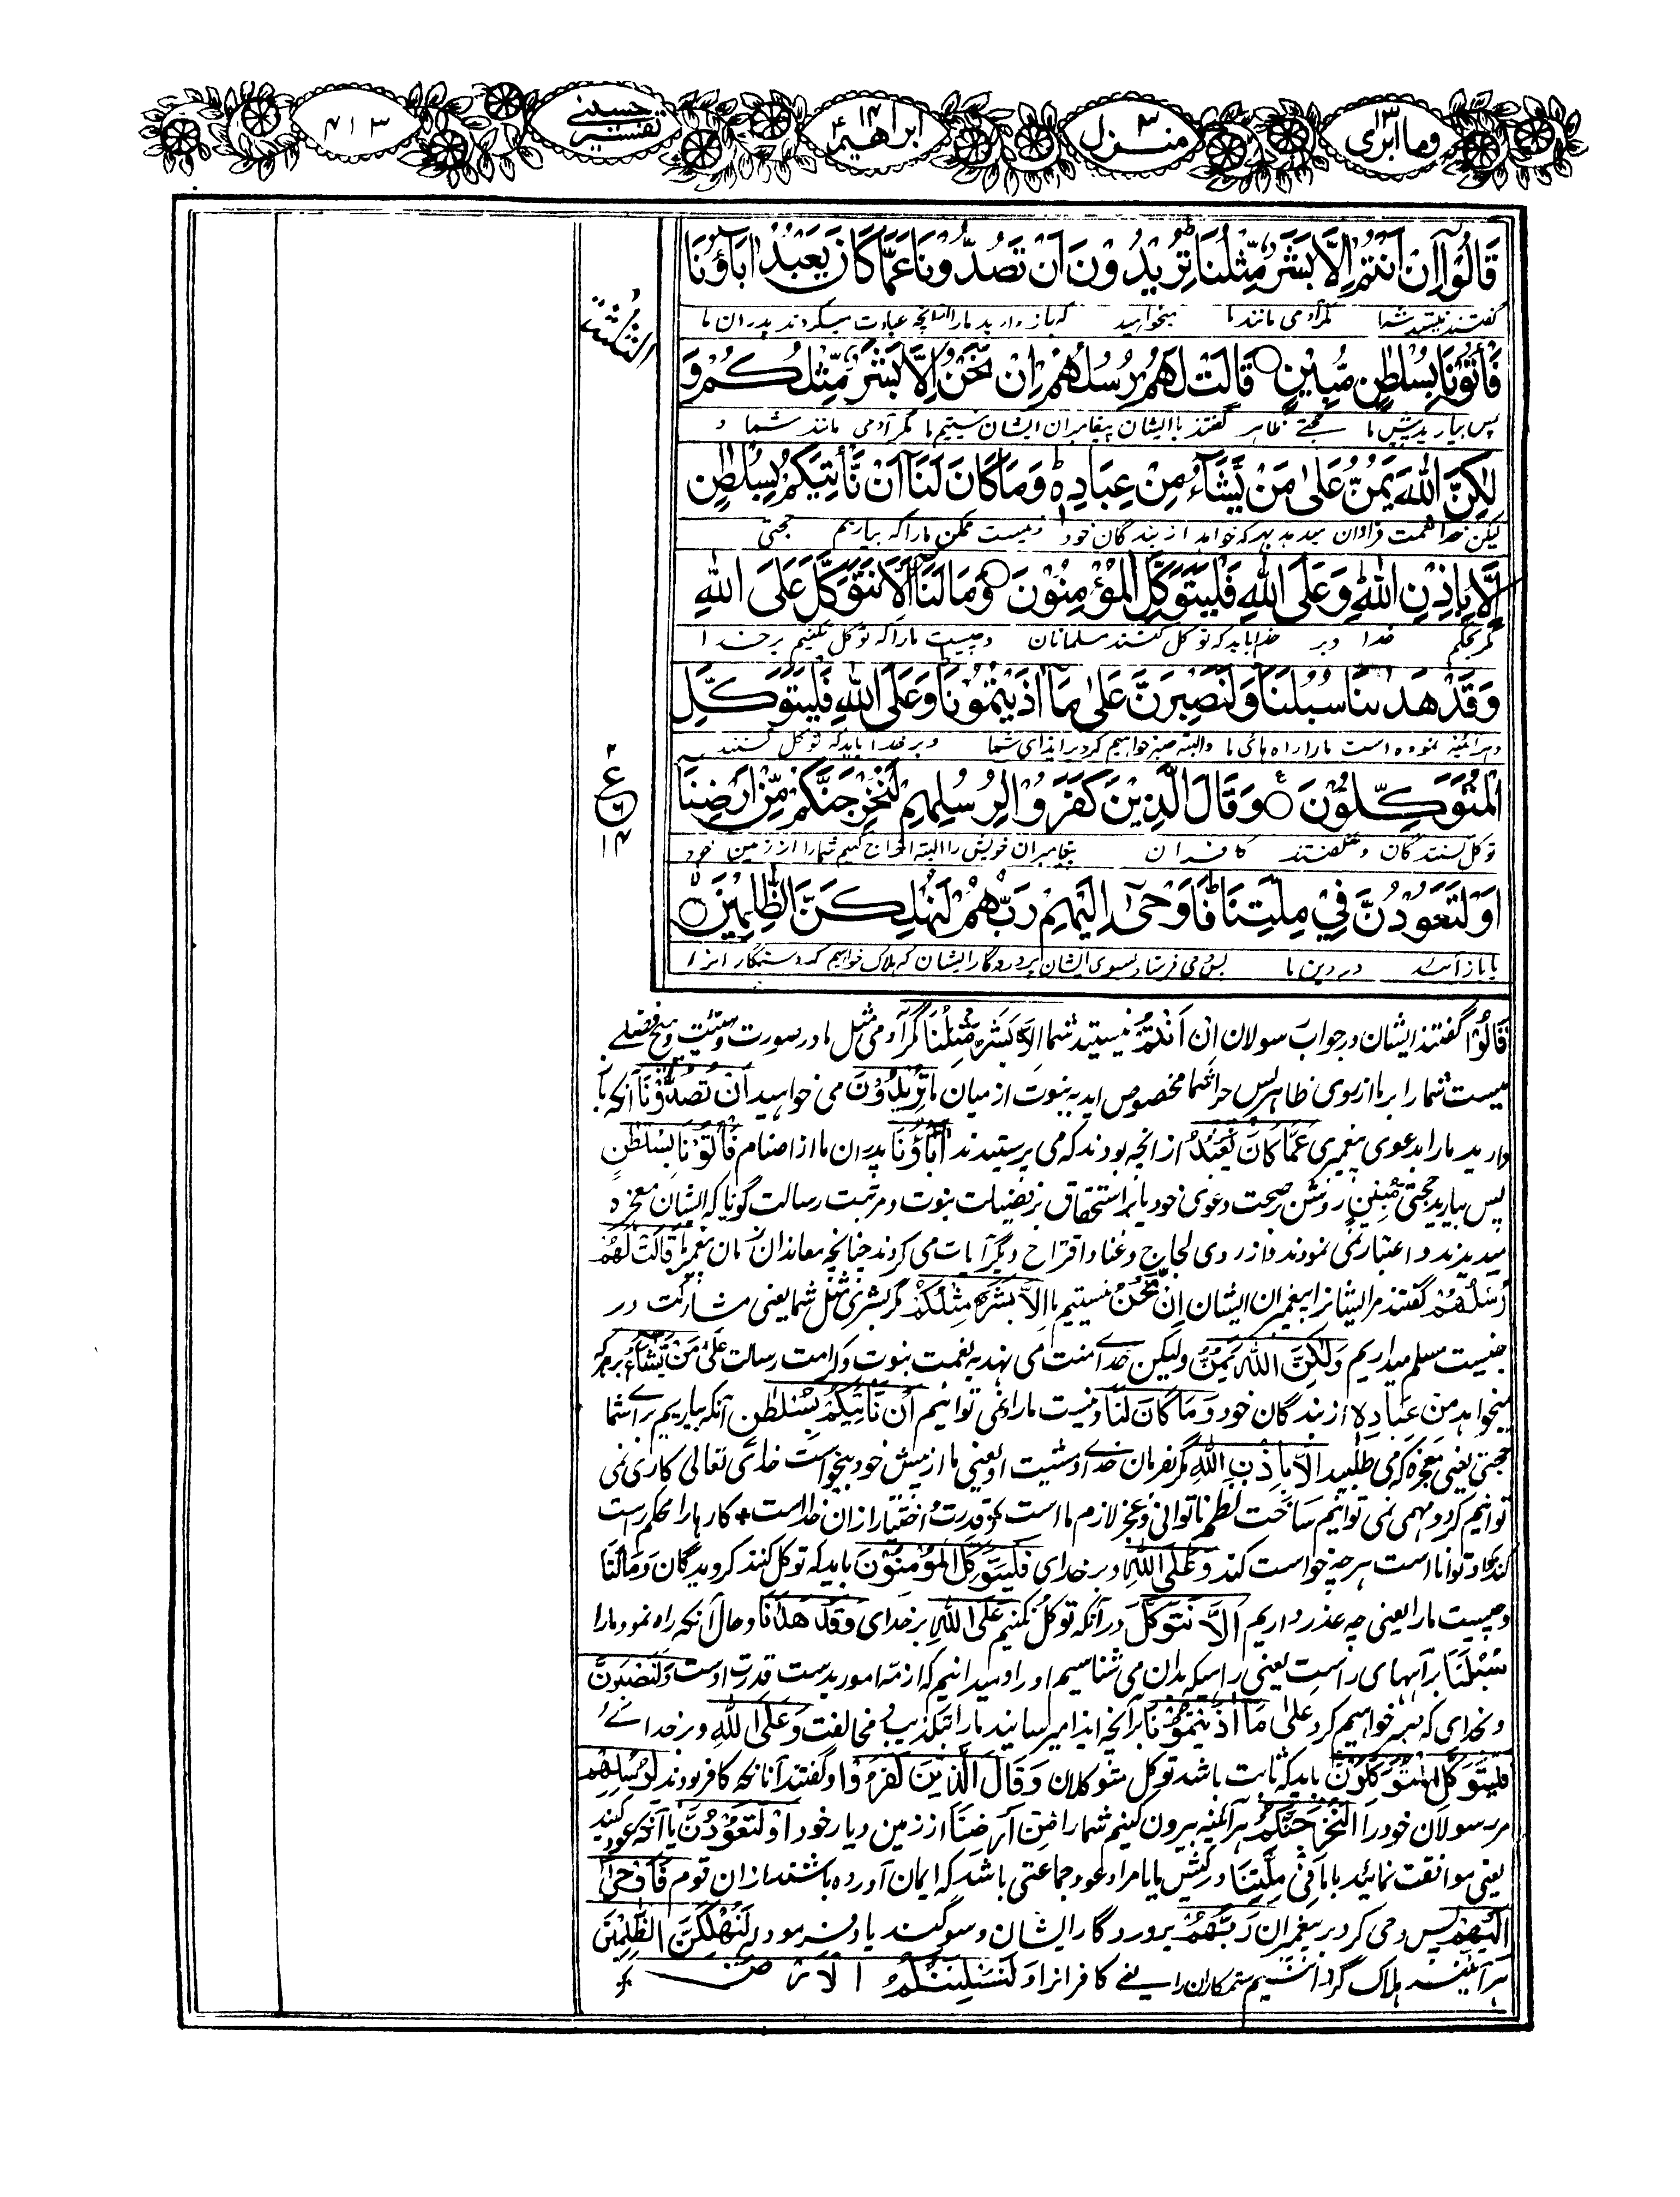 وما ابرئ ١٣
منزل ٣
ابراهیم ١٤
تفسیر حسینی
٤١٣
قَالُوْٓا اِنْ اَنْتُمْ اِلَّا بَشَرٌ مِّثْلُنَا تُرِيْدُوْنَ اَنْ تَصُدُّوْنَا عَمَّا كَانَ يَعْبُدُ اٰبَآؤُنَا
گفتند نیستید شما مگر آدمی مانند ما میخواهید که باز دارید مارا از آنچه عبادت میکردند پدران ما
الثلثة
فَاْتُوْنَا بِسُلْطٰنٍ مُّبِيْنٍ ۝ قَالَتْ لَهُمْ رُسُلُهُمْ اِنْ نَّحْنُ اِلَّا بَشَرٌ مِّثْلُكُمْ وَ
پس بیارید پیش ما حجتے ظاهر گفتند با ایشان پیغامبران ایشان نیستیم ما مگر آدمی مانند شما و
لٰكِنَّ اللّٰهَ يَمُنُّ عَلٰى مَنْ يَّشَآءُ مِنْ عِبَادِهٖ ؕ وَمَا كَانَ لَنَآ اَنْ نَّاْتِيَكُمْ بِسُلْطٰنٍ
لیکن خدا نعمت فراوان میدهد بهر که خواهد از بندگان خود و نیست ممکن مارا که بیاریم حجتی
اِلَّا بِاِذْنِ اللّٰهِ وَعَلَى اللّٰهِ فَلْيَتَوَكَّلِ الْمُؤْمِنُوْنَ ۝ وَمَا لَنَآ اَلَّا نَتَوَكَّلَ عَلَى اللّٰهِ
مگر بحکم خدا و بر خدا باید که توکل کنند مسلمانان و چیست مارا که توکل نکنیم بر خدا
وَقَدْ هَدٰىنَا سُبُلَنَا وَلَنَصْبِرَنَّ عَلٰى مَآ اٰذَيْتُمُوْنَا وَعَلَى اللّٰهِ فَلْيَتَوَكَّلِ
و هرآئینه نموده است مارا راه های ما و البته صبر خواهیم کرد بر ایذای شما و بر خدا باید که توکل کنند
الْمُتَوَكِّلُوْنَ ۝ وَقَالَ الَّذِيْنَ كَفَرُوْا لِرُسُلِهِمْ لَنُخْرِجَنَّكُمْ مِّنْ اَرْضِنَآ
٢ ع ٦ ١٤
توکل کنندگان و گفتند کافران پیغامبران خویش را البته اخراج کنیم شمارا از زمین خود
اَوْ لَتَعُوْدُنَّ فِيْ مِلَّتِنَا ؕ فَاَوْحٰٓى اِلَيْهِمْ رَبُّهُمْ لَنُهْلِكَنَّ الظّٰلِمِيْنَ ۝
یا باز آئید در دین ما پس وحی فرستاد بسوی ایشان پروردگار ایشان که هلاک خواهیم کرد ستمگاران را
قَالُوْٓا گفتند ایشان در جواب رسولان اِنْ اَنْتُمْ نیستید شما اِلَّا بَشَرٌ مِّثْلُنَا مگر آدمی مثل ما در صورت و هیئت و هیچ فضلے
نیست شمارا بر ما از روی ظاهر پس چرا شما مخصوص اید به نبوت از میان ما تُرِيْدُوْنَ می خواهید اَنْ تَصُدُّوْنَا آنکه باز
دارید مارا بدعوی پیغمبری عَمَّا كَانَ يَعْبُدُ از انچه بودند که می پرستیدند اٰبَآؤُنَا پدران ما از اصنام فَاْتُوْنَا بِسُلْطٰنٍ
پس بیارید حجتی مُّبِيْنٍ روشن بر صحت دعوی خود یا بر استحقاق بر فضیلت نبوت و مرتبت رسالت گویا که ایشان معجزه
میدیدند و اعتبار نمی نمودند و از روی لجاج و عناد اقتراح دیگر آیات می کردند چنانچه معاندان زمان پیغمبر ما قَالَتْ لَهُمْ
رُسُلُهُمْ گفتند مر ایشانرا پیغمبران ایشان اِنْ نَّحْنُ نیستیم ما اِلَّا بَشَرٌ مِّثْلُكُمْ مگر بشری مثل شما یعنی مشارکت در
جنسیت مسلم میداریم وَلٰكِنَّ اللّٰهَ يَمُنُّ ولیکن خداے منت می نهد به نعمت نبوت و کرامت رسالت عَلٰى مَنْ يَّشَآءُ بر هر که
میخواهد مِنْ عِبَادِهٖ از بندگان خود وَمَا كَانَ لَنَا و نیست مارا نمی توانیم اَنْ نَّاْتِيَكُمْ بِسُلْطٰنٍ آنکه بیاریم براے شما
حجتی یعنی معجزه که می طلبید اِلَّا بِاِذْنِ اللّٰهِ مگر بفرمان خداے و مشیت او یعنی ما از پیش خود بیخواست خدای تعالی کاری نمی
توانیم کرد و مهمی نمی توانیم ساخت نظم ناتوانی و عجز لازم ما است * قدرت و اختیار ازان خداست * کارها را محکم راست
کند * او توانا است هرچه خواست کند وَعَلَى اللّٰهِ و بر خدای فَلْيَتَوَكَّلِ الْمُؤْمِنُوْنَ باید که توکل کنند گرویدگان وَمَا لَنَآ
و چیست مارا یعنی چه عذر داریم اَلَّا نَتَوَكَّلَ در آنکه توکل نکنیم عَلَى اللّٰهِ بر خدای وَقَدْ هَدٰىنَا و حال آنکه راه نمود مارا
سُبُلَنَا براههای راست یعنی راهیکه بدان می شناسیم او را و میدانیم که ازمه امور بدست قدرت اوست وَلَنَصْبِرَنَّ
و بخدای که صبر خواهیم کرد عَلٰى مَآ اٰذَيْتُمُوْنَا بر آنچه ایذا میرسانید مارا بتکذیب و مخالفت وَعَلَى اللّٰهِ و بر خداے
فَلْيَتَوَكَّلِ الْمُتَوَكِّلُوْنَ باید که ثابت باشد توکل متوکلان وَقَالَ الَّذِيْنَ كَفَرُوْا و گفتند آنانکه کافر بودند لِرُسُلِهِمْ
مر رسولان خود را لَنُخْرِجَنَّكُمْ هرآئینه بیرون کنیم شمارا مِنْ اَرْضِنَآ از زمین دیار خود اَوْ لَتَعُوْدُنَّ یا آنکه عود کنید
یعنی موافقت نمائید با ما فِيْ مِلَّتِنَا در کیش ما یا مراد عود جماعتی باشد که ایمان آورده باشند ازان قوم فَاَوْحٰٓى
اِلَيْهِمْ پس وحی کرد بر پیغمبران رَبُّهُمْ پروردگار ایشان و سوگند یاد فرمود که لَنُهْلِكَنَّ الظّٰلِمِيْنَ
هرآئینه هلاک گردانیم ستمکاران را یعنے کافرانرا وَلَنُسْكِنَنَّكُمُ الْاَرْضَ